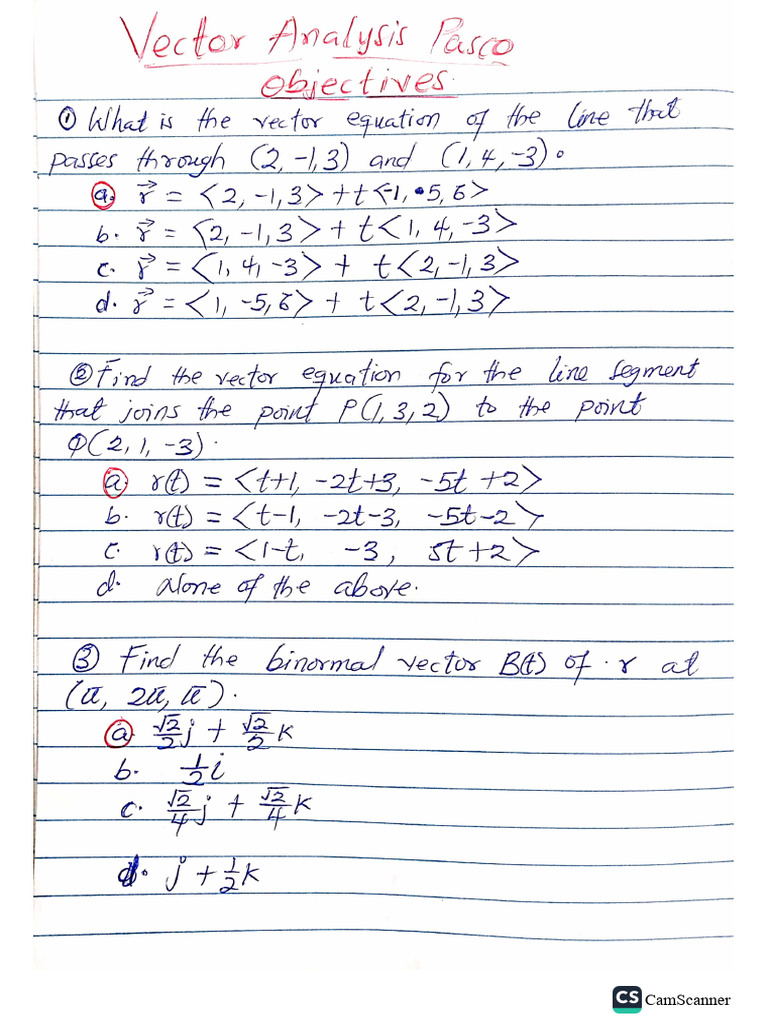 Vector Analysis Pasco
Objectives.
① What is the vector equation of the line that
passes through (2, -1, 3) and (1, 4, -3).
a. r⃗ = <2, -1, 3> + t<-1, 5, 6>
b. r⃗ = <2, -1, 3> + t<1, 4, -3>
c. r⃗ = <1, 4, -3> + t<2, -1, 3>
d. r⃗ = <1, -5, 6> + t<2, -1, 3>
② Find the vector equation for the line segment
that joins the point P(1, 3, 2) to the point
Q(2, 1, -3).
a r(t) = <t+1, -2t+3, -5t +2>
b. r(t) = <t-1, -2t-3, -5t-2>
c. r(t) = <1-t, -3, 5t+2>
d. None of the above.
③ Find the binormal vector B(t) of r at
(π, 2π, π).
a √2/2 j + √2/2 k
b. 1/2 i
c. √2/4 j + √2/4 k
d. j + 1/2 k
CS CamScanner